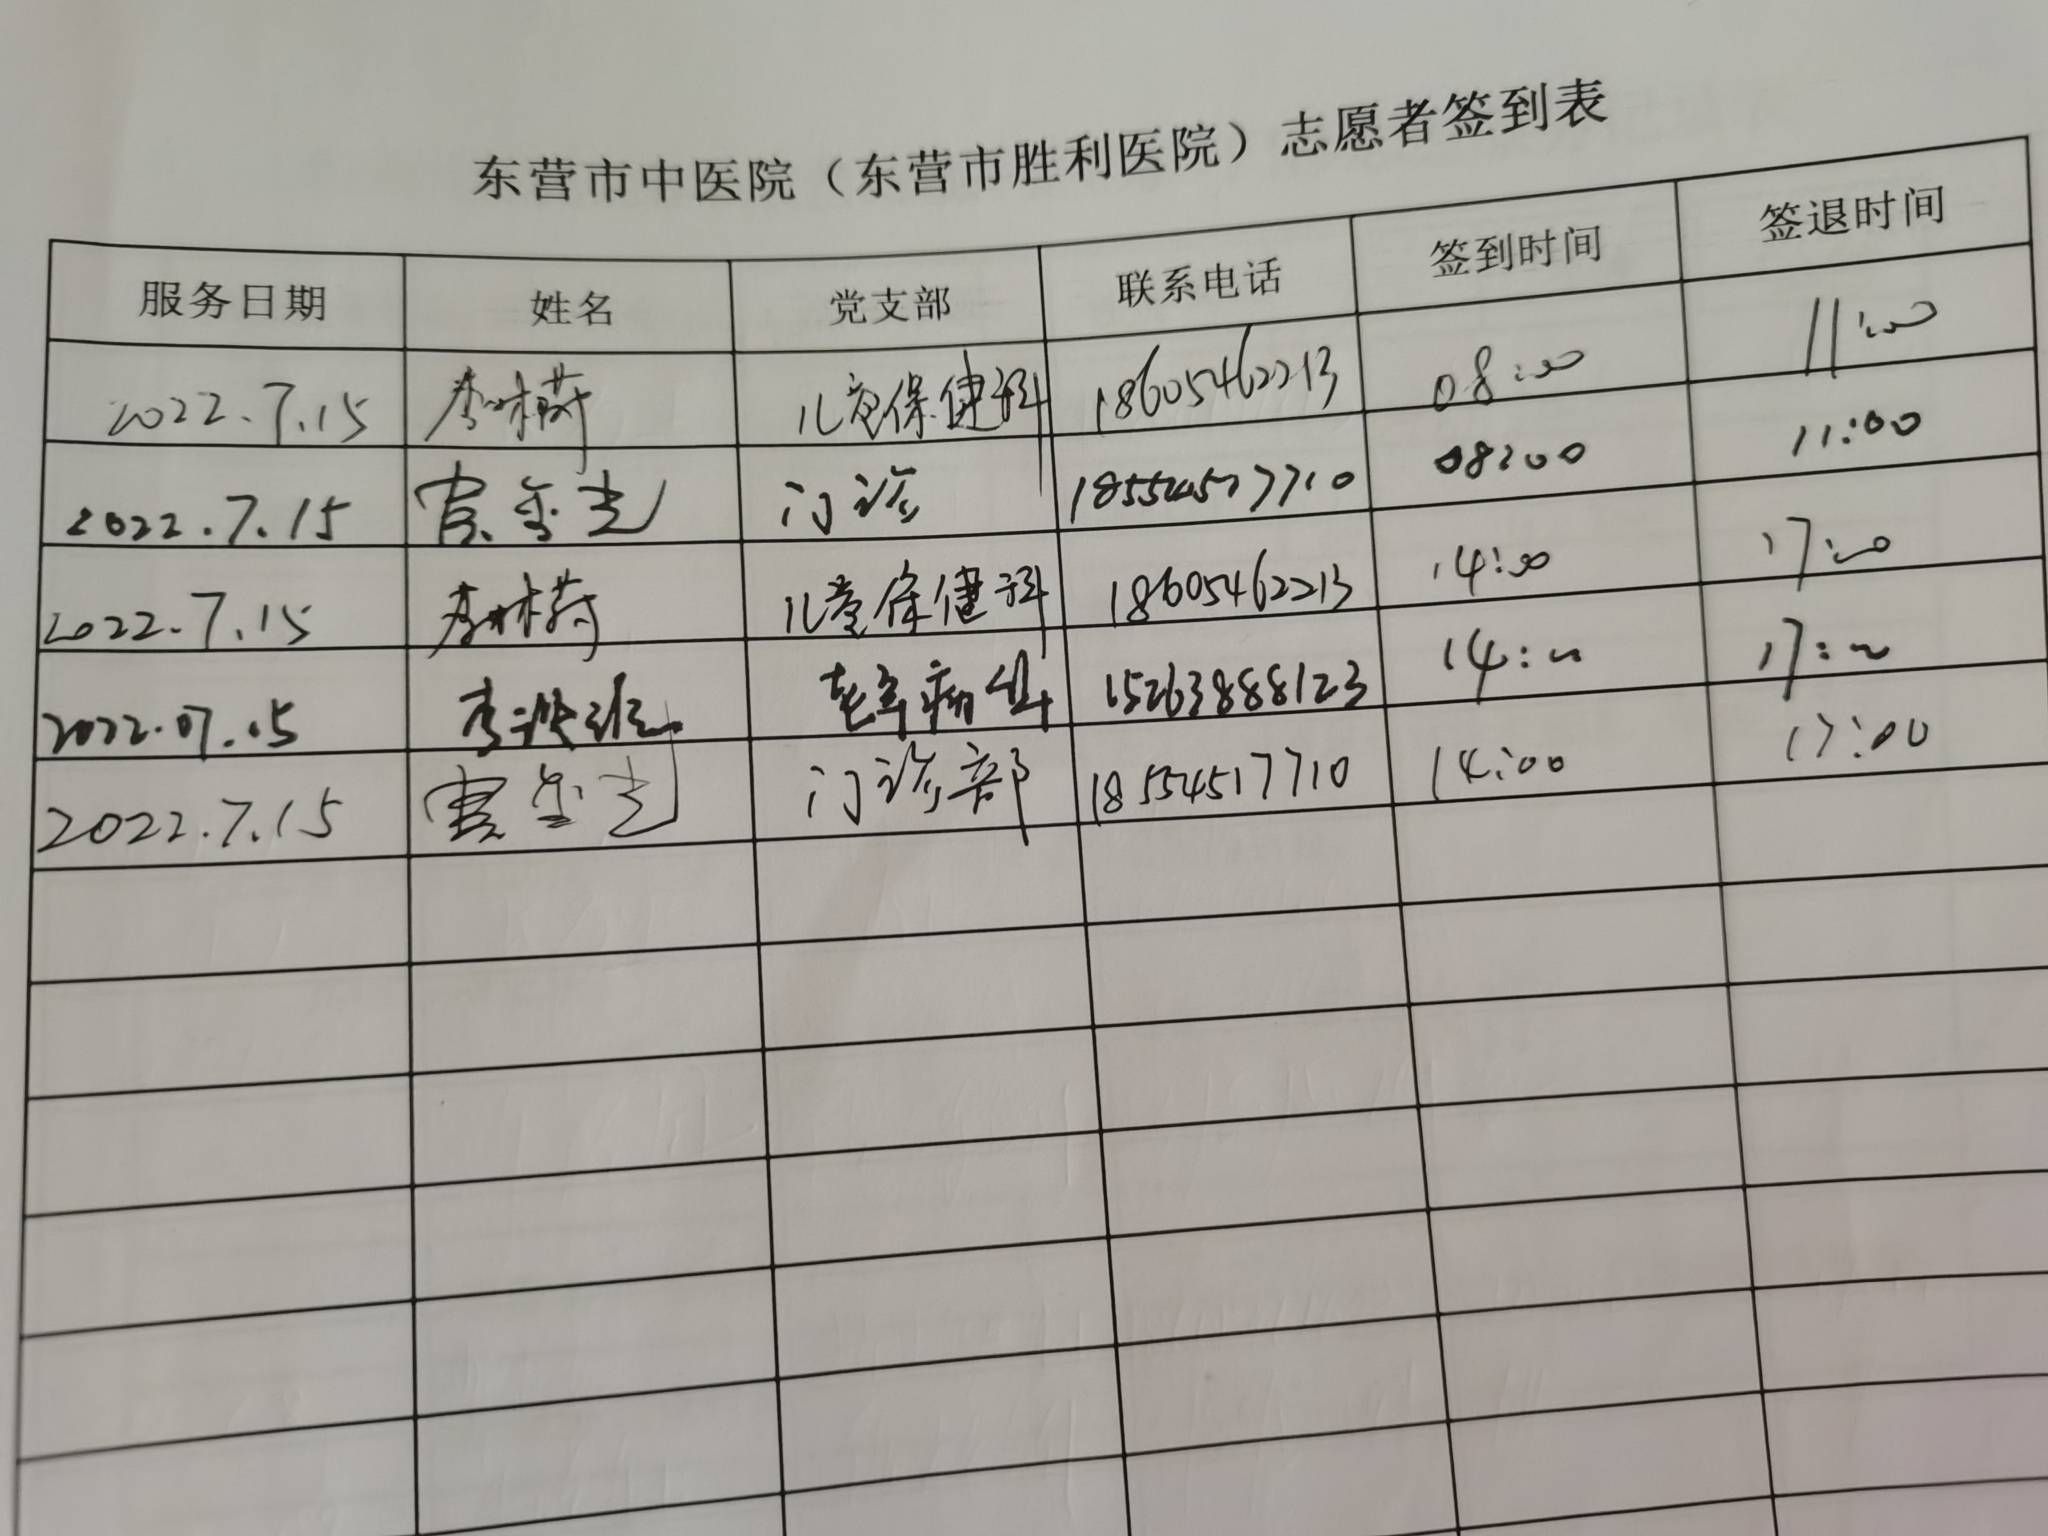 东营市中医院（东营市胜利医院）志愿者签到表
服务日期 姓名 党支部 联系电话 签到时间 签退时间
2022.7.15 儿童保健科 18605462213 08:00 11:00
2022.7.15 门诊 18554517710 08:00 11:00
2022.7.15 儿童保健科 18605462213 14:00 17:00
2022.07.15 李 老年病科 15263888123 14:00 17:00
2022.7.15 门诊部 18554517710 14:00 17:00